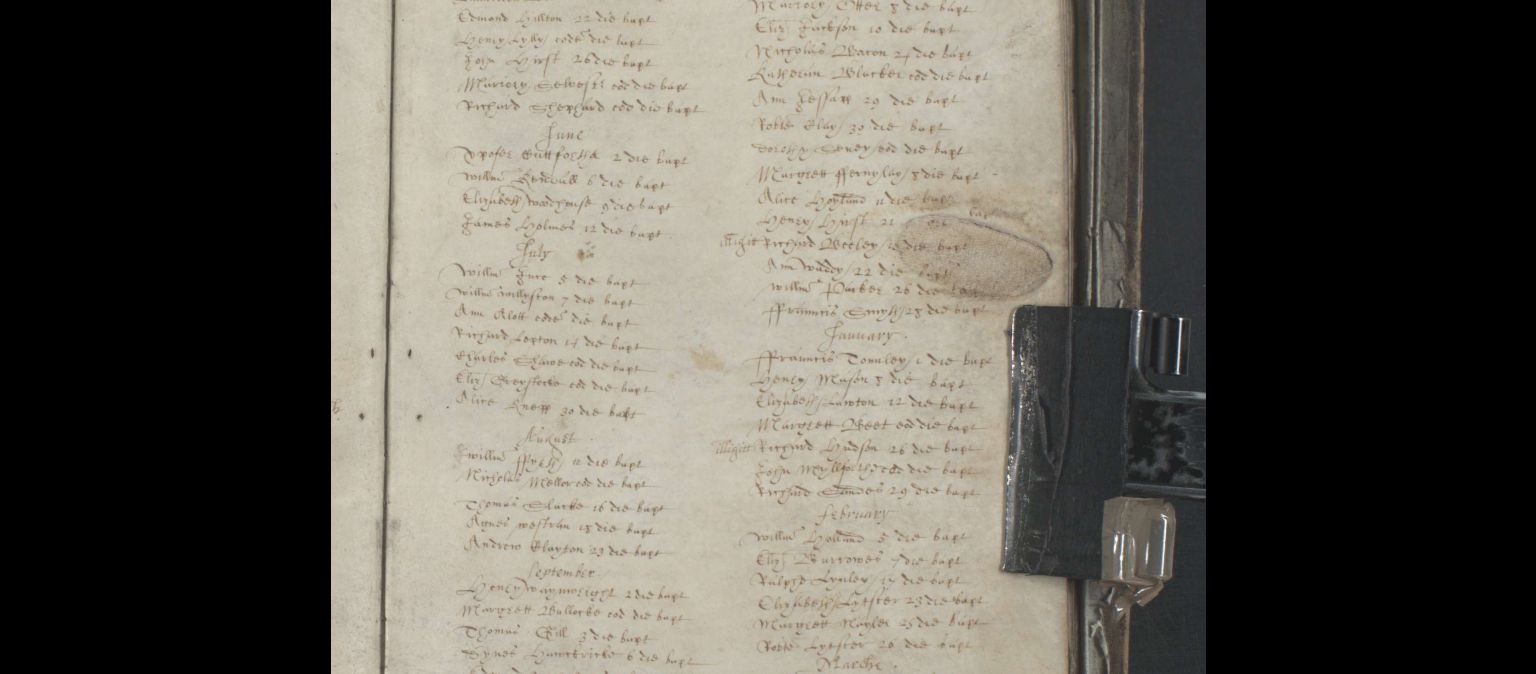 Edmond Hillton 22 die bapt
Henry Lylly eodē die bapt
John Hirst 26 die bapt
Mariory Selvestr eod die bapt
Richard Shephard eod die bapt
June
Xpofer Guttforthe 2 die bapt
Willm̄ Kendall 6 die bapt
Elizabeth Woodhouse 9 die bapt
James Holmes 12 die bapt
July
Willm̄ Ince 5 die bapt
Willm̄ Willyston 7 die bapt
Ann Alott eodē die bapt
Richard Lepton 14 die bapt
Charles Shawe eod die bapt
Eliz Greystocke eod die bapt
Alice 30 die bapt
August
Willm̄ ffyrth 11 die bapt
Nicholas Mellor eod die bapt
Thomas Slacke 16 die bapt
Agnes Westran 18 die bapt
Andrew Clayton 23 die bapt
September
Henry Waynwright 2 die bapt
Margrett Bullocke eod die bapt
Thomas Gill 3 die bapt
Hawckricke 6 die bapt
Mariory Otter 8 die bapt
Eliz Jackson 10 die bapt
Nicholas Bacon 24 die bapt
Katherin Blacker eod die bapt
Ann Jessapp 29 die bapt
Robte Clay 30 die bapt
Dorothy Seney eod die bapt
Margrett ffernylay 8 die bapt
Alice Hoyland 11 die bapt
Henry Hirst 21 die bapt
illigit Richard Beeley die bapt
Ann Waddy 22 die bapt
Willm̄ Parker 26 die bapt
ffrauncis Smyth 28 die bapt
January
ffrauncis Townley 1 die bapt
Henry Mason 8 die bapt
Elizabeth Lawton 12 die bapt
Margrett Beet eod die bapt
illigitt Richard Hudson 26 die bapt
John Wyllforthe eod die bapt
Richard Sandes 29 die bapt
february
Willm̄ Holland 5 die bapt
Eliz Burrowes 7 die bapt
Ralphe Lynley 17 die bapt
Elizabeth Lyster 23 die bapt
Margrett Nayler 25 die bapt
Robte Lytster 26 die bapt
Marche